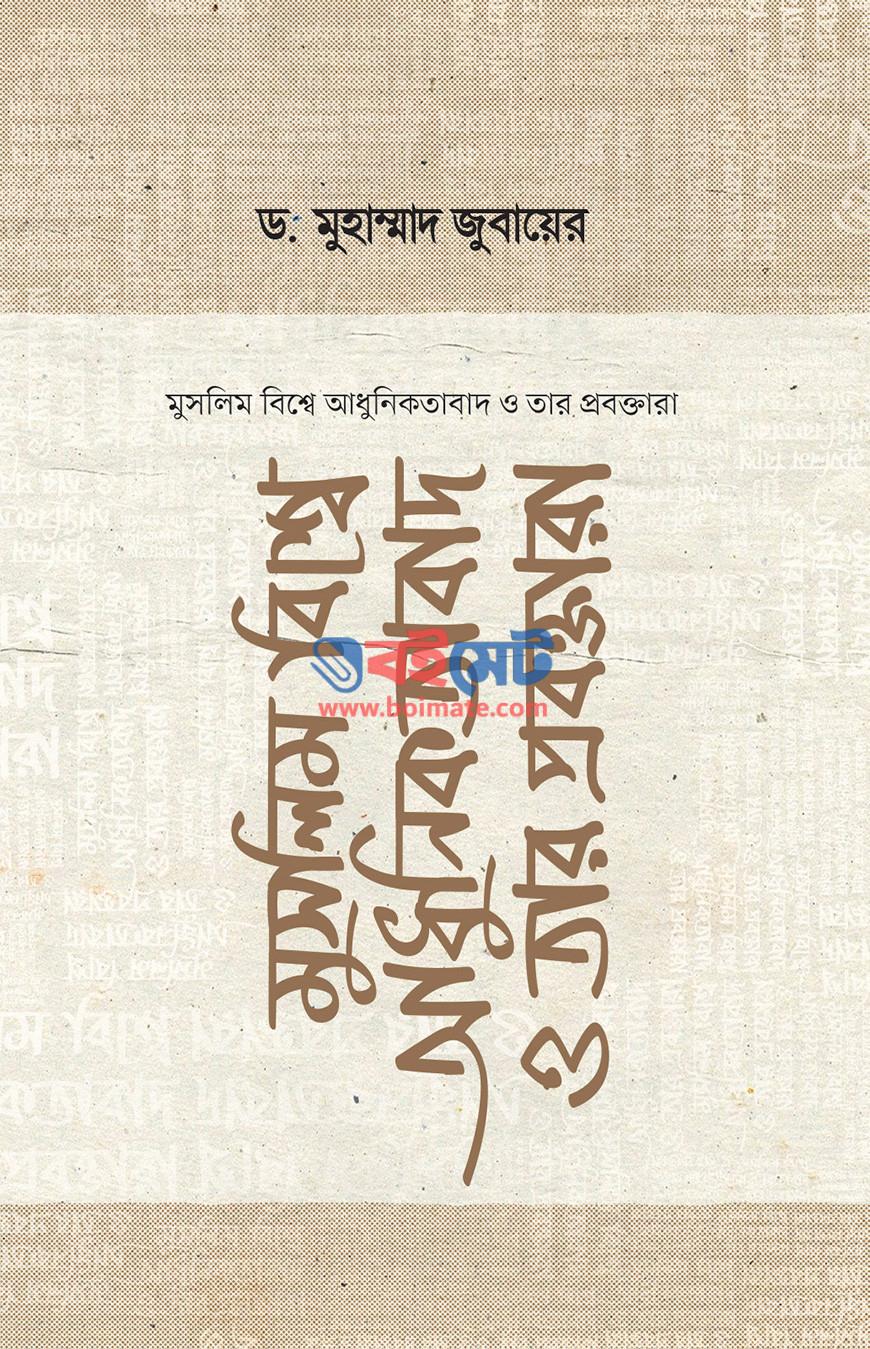 ড. মুহাম্মাদ জুবায়ের
মুসলিম বিশ্বে আধুনিকতাবাদ ও তার প্রবক্তারা
মুসলিম বিশ্বে
আধুনিকতাবাদ
ও তার প্রবক্তারা
বইমেট
www.boimate.com